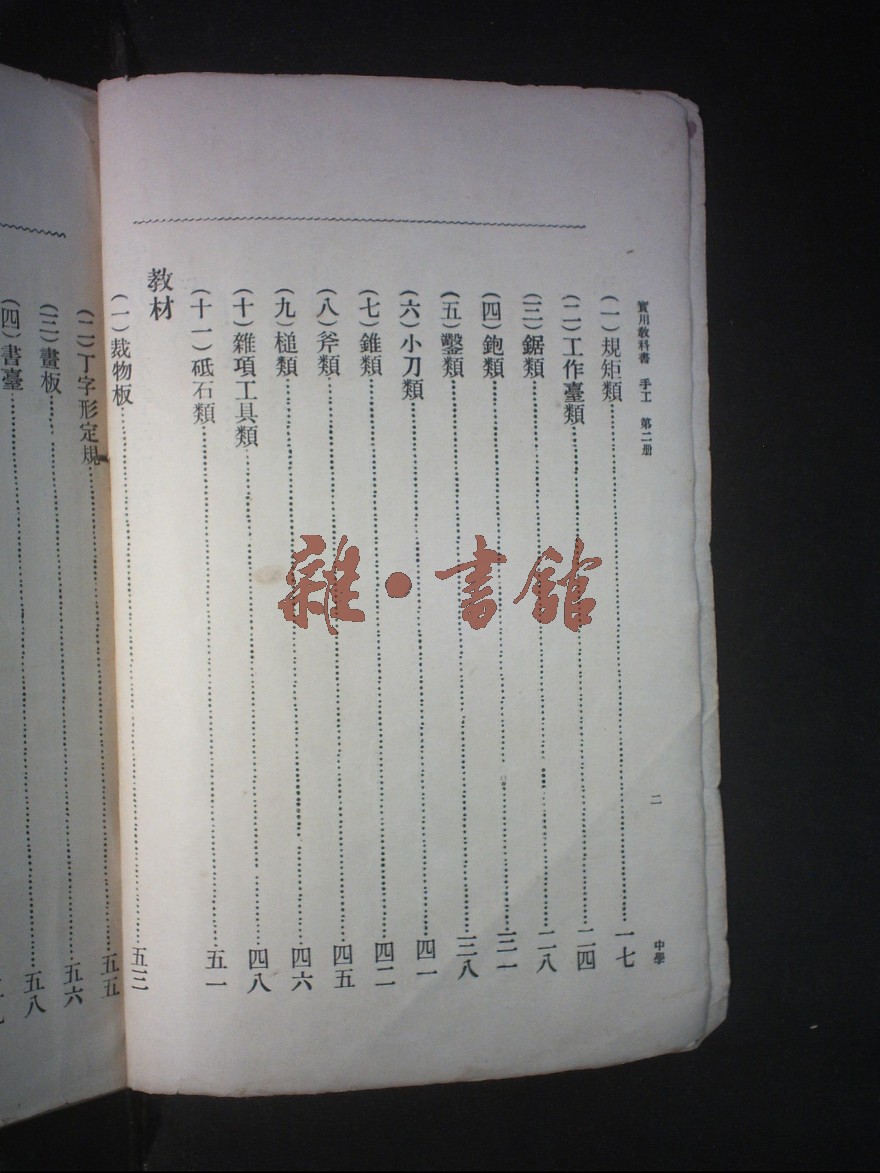 實用教科書 手工 第二册 二 中學
(一)規矩類……一七
(二)工作臺類……二四
(三)鋸類……二八
(四)鉋類……三一
(五)鑿類……三八
(六)小刀類……四一
(七)錐類……四二
(八)斧類……四五
(九)槌類……四六
(十)雜項工具類……四八
(十一)砥石類……五一
教材
(一)裁物板……五三
(二)丁字形定規……五五
(三)畫板……五六
(四)書臺……五八
雜·書館